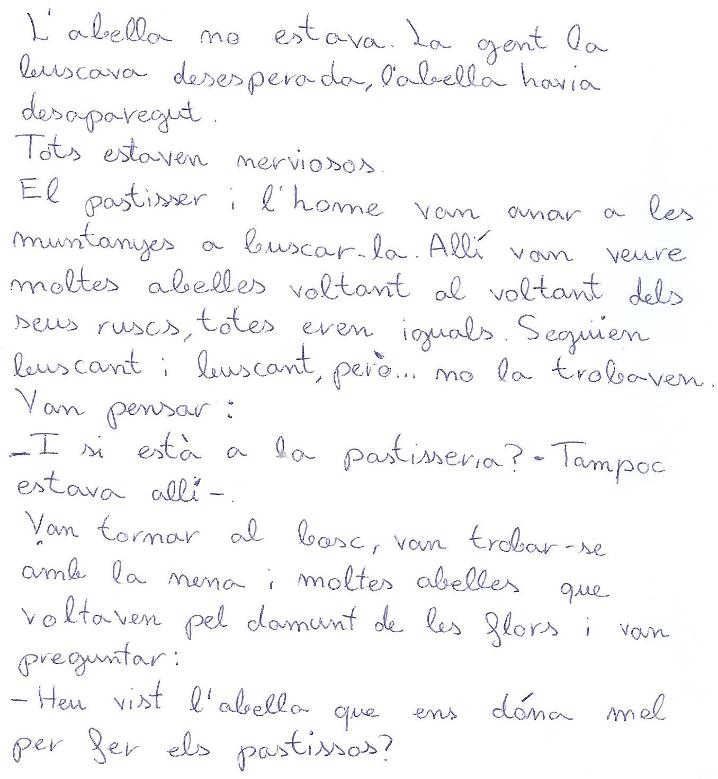 L'abella no estava. La gent la
buscava desesperada, l'abella havia
desaparegut.
Tots estaven nerviosos.
El pastisser i l'home van anar a les
muntanyes a buscar-la. Allí van veure
moltes abelles voltant al voltant dels
seus ruscs, totes eren iguals. Seguien
buscant i buscant, però... no la trobaven.
Van pensar:
-I si està a la pastisseria? - Tampoc
estava allí-.
Van tornar al bosc, van trobar-se
amb la nena i moltes abelles que
voltaven pel damunt de les flors i van
preguntar:
- Heu vist l'abella que ens dóna mel
per fer els pastissos?